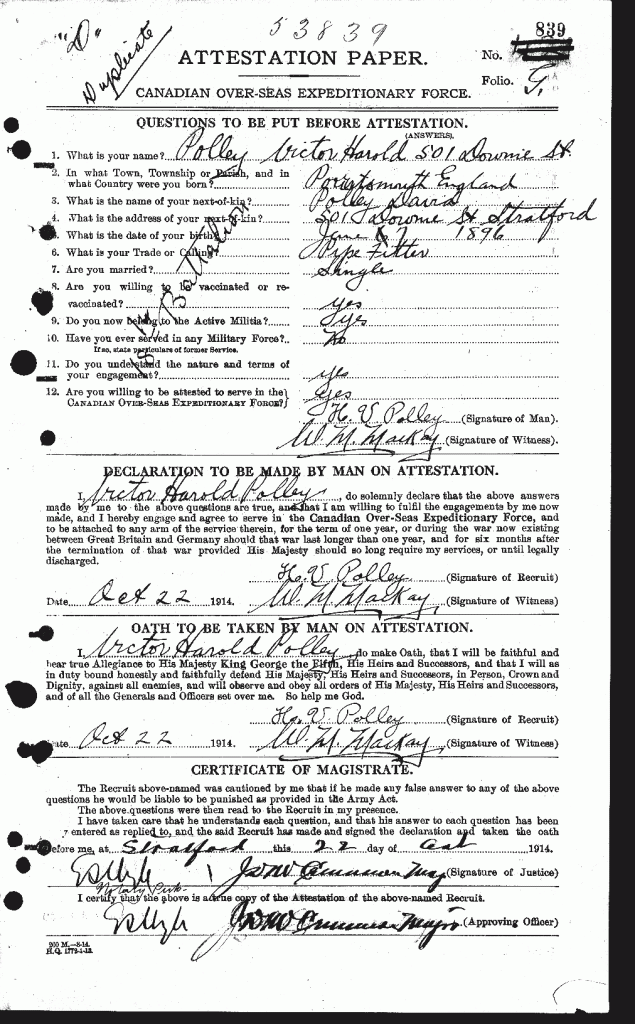 "D" 53839
Duplicate
No. 839
ATTESTATION PAPER.
Folio. G.
CANADIAN OVER-SEAS EXPEDITIONARY FORCE.
QUESTIONS TO BE PUT BEFORE ATTESTATION.
(ANSWERS).
1. What is your name? Polley Victor Harold 501 Downie St.
2. In what Town, Township or Parish, and in
what Country were you born? Portsmouth England
3. What is the name of your next-of-kin? Polley David
4. What is the address of your next-of-kin? 501 Downie St Stratford
5. What is the date of your birth? June 7 1896
6. What is your Trade or Calling? Pipe Fitter
7. Are you married? Single
8. Are you willing to be vaccinated or re-
vaccinated? yes
9. Do you now belong to the Active Militia? yes
10. Have you ever served in any Military Force? No
If so, state particulars of former Service.
11. Do you understand the nature and terms of
your engagement? yes
12. Are you willing to be attested to serve in the
CANADIAN OVER-SEAS EXPEDITIONARY FORCE? yes
18th Battalion
H. V Polley (Signature of Man).
W. M. Mackay (Signature of Witness).
DECLARATION TO BE MADE BY MAN ON ATTESTATION.
I, Victor Harold Polley, do solemnly declare that the above answers
made by me to the above questions are true, and that I am willing to fulfil the engagements by me now
made, and I hereby engage and agree to serve in the Canadian Over-Seas Expeditionary Force, and
to be attached to any arm of the service therein, for the term of one year, or during the war now existing
between Great Britain and Germany should that war last longer than one year, and for six months after
the termination of that war provided His Majesty should so long require my services, or until legally
discharged.
H. V Polley (Signature of Recruit)
Date Oct 22 1914. W. M Mackay, (Signature of Witness)
OATH TO BE TAKEN BY MAN ON ATTESTATION.
I, Victor Harold Polley, do make Oath, that I will be faithful and
bear true Allegiance to His Majesty King George the Fifth, His Heirs and Successors, and that I will as
in duty bound honestly and faithfully defend His Majesty, His Heirs and Successors, in Person, Crown and
Dignity, against all enemies, and will observe and obey all orders of His Majesty, His Heirs and Successors,
and of all the Generals and Officers set over me. So help me God.
H. V Polley (Signature of Recruit)
Date Oct 22 1914. W. M. Mackay, (Signature of Witness)
CERTIFICATE OF MAGISTRATE.
The Recruit above-named was cautioned by me that if he made any false answer to any of the above
questions he would be liable to be punished as provided in the Army Act.
The above questions were then read to the Recruit in my presence.
I have taken care that he understands each question, and that his answer to each question has been
entered as replied to, and the said Recruit has made and signed the declaration and taken the oath
before me, at Stratford this 22 day of Oct 1914.
(Signature of Justice)
I certify that the above is a true copy of the Attestation of the above-named Recruit.
(Approving Officer)
200 M.—8-14.
H.Q. 1772-1-13.